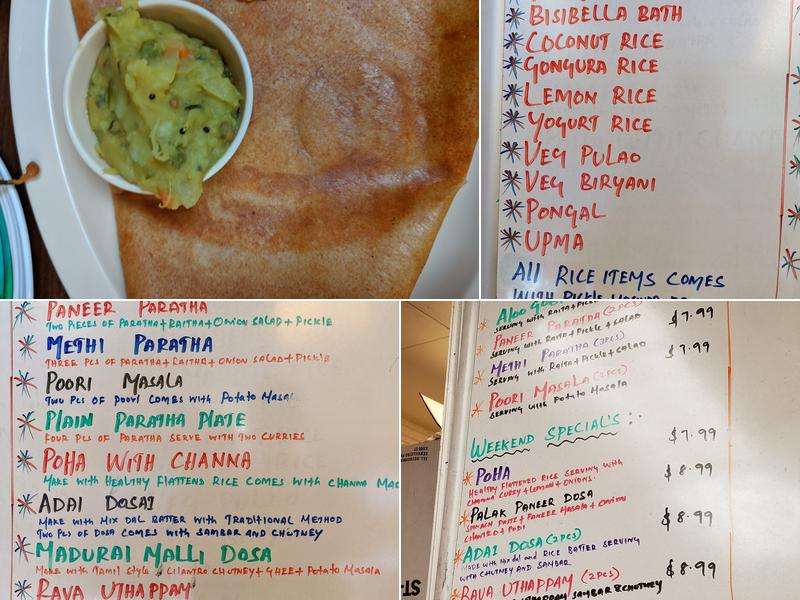 BISIBELLA BATH
COCONUT RICE
GONGURA RICE
LEMON RICE
YOGURT RICE
VEG PULAO
VEG BIRYANI
PONGAL
UPMA
All RICE ITEMS COMES
WITH PICKLE
PANEER PARATHA
TWO PIECES OF PARATHA+RAITHA+ONION SALAD+PICKLE
METHI PARATHA
THREE PCS OF PARATHA+RAITHA+ONION SALAD+PICKLE
POORI MASALA
TWO PCS OF POORI COMES WITH POTATO MASAL
PLAIN PARATHA PLATE
FOUR PCS OF PARATHA SERVE WITH TWO CURRIES
POHA WITH CHANNA
MAKE WITH HEALTHY FLATTEND RICE COMES WITH CHANNA MAS
ADAI DOSAI
MAKE WITH MIX DAL BATTER WITH TRADITIONAL METHOD
TWO PCS OF DOSA COMES WITH SAMBAR AND CHUTNEY
MADURAI MALLI DOSA
MAKE WITH TAMIL STYLE CILANTRO CHUTNEY+GHEE+POTATO MASALA
RAVA UTHAPPAM
ALOO
SERVING WITH RAITA+PICKLE
PANEER PARATHA (2PCS) $7.99
SERVING WITH RAITA+PICKLE+SALAD
METHI PARATHA (3PCS) $7.99
SERVING WITH RAITA+PICKLE+SALAD
POORI MASALA (2PCS)
SERVING WITH POTATO MASALA
WEEKEND SPECIAL'S : $7.99
POHA $8.99
HEALTHY FLATTENED RICE SERVING WITH
CHANNA CURRY+LEMON+ONIONS.
PALAK PANEER DOSA $8.99
SPINACH PASTE+PANEER MASALA+ONION
CILANTRO & PODI
ADAI DOSA (2PCS) $8.99
MADE WITH MIX DAL AND RICE BATTER SERVING
WITH CHUTNEY AND SAMBAR
RAVA UTHAPPAM (2PCS)
UTHAPPAM SAMBAR & CHUTNEY